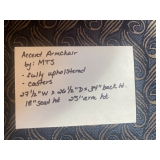 Accent Armchair
by: MTS
- fully upholstered
- casters
27½"W x 26½"D x 34" back ht.
18" seat ht 25" arm ht.